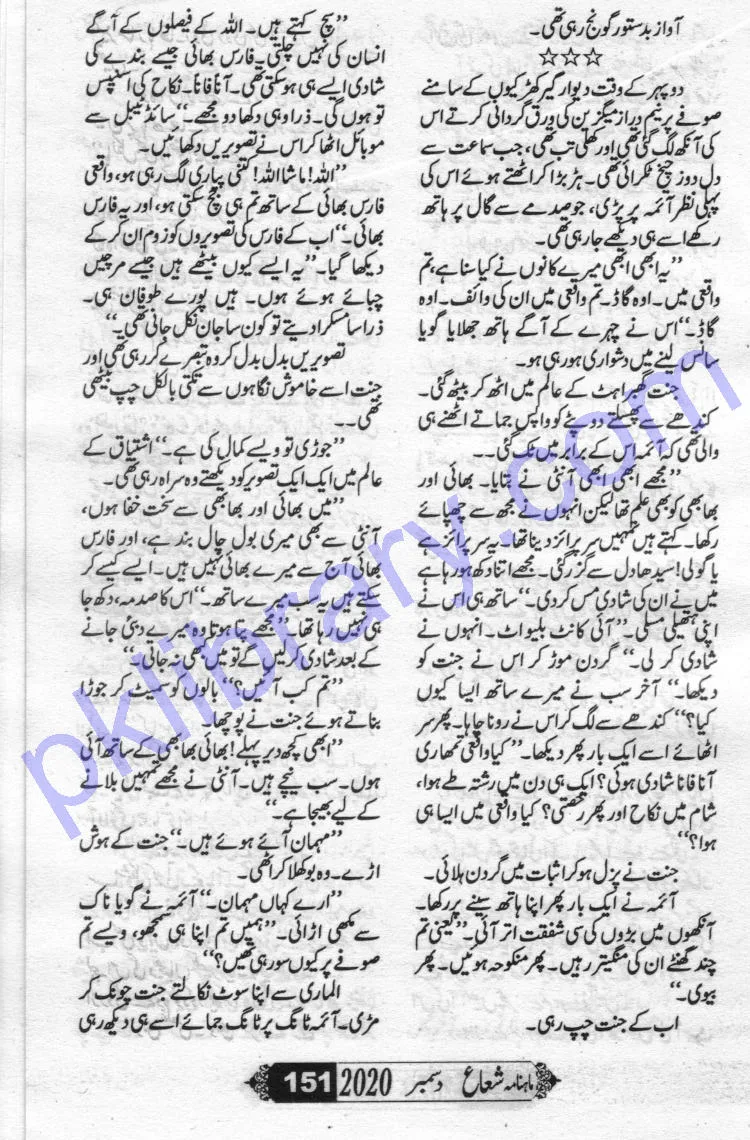 آواز بدستور گونج رہی تھی۔
☆☆☆
دوپہر کے وقت دیوار گیر کھڑکیوں کے سامنے
صوفے پر نیم دراز میگزین کی ورق گردانی کرتے اس
کی آنکھ لگ گئی تھی اور کھلی تب تھی، جب سماعت سے
دل دوز چیخ ٹکرائی تھی۔ ہڑبڑا کر اٹھتے ہوئے اس کی
پہلی نظر آئمہ پر پڑی، جو صدمے سے گال پر ہاتھ
رکھے اسے ہی دیکھے جا رہی تھی۔
”یہ ابھی ابھی میرے کانوں نے کیا سنا ہے، تم
واقعی میں۔ اوہ گاڈ۔ تم واقعی میں ان کی وائف۔ اوہ
گاڈ۔“ اس نے چہرے کے آگے ہاتھ جھلایا گویا
سانس لینے میں دشواری ہو رہی ہو۔
جنت گھبراہٹ کے عالم میں اٹھ کر بیٹھ گئی۔
کندھے سے پھسلتے دوپٹے کو واپس جماتے اٹھنے ہی
والی تھی کہ آئمہ اس کے برابر میں ٹک گئی۔۔
”مجھے ابھی ابھی آنٹی نے بتایا۔ بھائی اور
بھابھی کو بھی علم تھا لیکن انہوں نے مجھ سے چھپائے
رکھا۔ کہتے ہیں تمہیں سرپرائز دینا تھا۔ یہ سرپرائز ہے
یا گولی! سیدھا دل سے گزر گئی۔ مجھے اتنا دکھ ہو رہا ہے
میں نے ان کی شادی مس کر دی۔“ ساتھ ہی اس نے
اپنی ہتھیلی مسلی۔ ”آئی کانٹ بلیو اٹ۔ انہوں نے
شادی کر لی۔“ گردن موڑ کر اس نے جنت کو
دیکھا۔ ”آخر سب نے میرے ساتھ ایسا کیوں
کیا؟“ کندھے سے لگ کر اس نے رونا چاہا۔ پھر سر
اٹھائے اسے ایک بار پھر دیکھا۔ ”کیا واقعی تمھاری
آنا فانا شادی ہوئی؟ ایک ہی دن میں رشتہ طے ہوا،
شام میں نکاح اور پھر رخصتی؟ کیا واقعی میں ایسا ہی
ہوا؟“
جنت نے پزل ہو کر اثبات میں گردن ہلائی۔
آئمہ نے ایک بار پھر اپنا ہاتھ سینے پر رکھا۔
آنکھوں میں بڑوں کی سی شفقت اتر آئی۔ ”یعنی تم
چند گھنٹے ان کی منگیتر رہیں۔ پھر منکوحہ ہوئیں۔ پھر
بیوی۔“
اب کے جنت چپ رہی۔
”سچ کہتے ہیں۔ اللہ کے فیصلوں کے آگے
انسان کی نہیں چلتی۔ فارس بھائی جیسے بندے کی
شادی ایسے ہی ہو سکتی تھی۔ آنا فانا۔ نکاح کی اسنیپس
تو ہوں گی۔ ذرا وہی دکھا دو مجھے۔“ سائڈ ٹیبل سے
موبائل اٹھا کر اس نے تصویریں دکھائیں۔
”اللہ! ماشااللہ! کتنی پیاری لگ رہی ہو، واقعی
فارس بھائی کے ساتھ تم ہی جچ سکتی ہو، اور یہ فارس
بھائی۔“ اب کے فارس کی تصویروں کو زوم ان کر کے
دیکھا گیا۔ ”یہ ایسے کیوں بیٹھے ہیں جیسے مرچیں
چبائے ہوئے ہوں۔ ہیں پورے طوفان ہی۔
ذرا سا مسکرا دیتے تو کون سا جان نکل جانی تھی۔“
تصویریں بدل بدل کر وہ تبصرے کر رہی تھی اور
جنت اسے خاموش نگاہوں سے تکتی بالکل چپ بیٹھی
تھی۔۔
”جوڑی تو ویسے کمال کی ہے۔“ اشتیاق کے
عالم میں ایک ایک تصویر کو دیکھتے وہ سراہ رہی تھی۔
”میں بھائی اور بھابھی سے سخت خفا ہوں،
آنٹی سے بھی میری بول چال بند ہے، اور فارس
بھائی آج سے میرے بھائی نہیں ہیں۔ ایسے کیسے کر
سکتے ہیں یہ سب میرے ساتھ۔“ اس کا صدمہ، دکھ جا
ہی نہیں رہا تھا۔ ”مجھے پتا ہوتا وہ میرے دبئی جانے
کے بعد شادی کر لیں گے تو میں کبھی نہ جاتی۔“
”تم کب آئیں؟“ بالوں کو سمیٹ کر جوڑا
بناتے ہوئے جنت نے پوچھا۔
”ابھی کچھ دیر پہلے! بھائی بھابھی کے ساتھ آئی
ہوں۔ سب نیچے ہیں۔ آنٹی نے مجھے تمہیں بلانے
کے لیے بھیجا ہے۔“
”مہمان آئے ہوئے ہیں۔“ جنت کے ہوش
اڑے۔ وہ بوکھلا کر اٹھی۔
”ارے کہاں مہمان۔“ آئمہ نے گویا ناک
سے مکھی اڑائی۔ ”ہمیں تم اپنا ہی سمجھو، ویسے تم
صوفے پر کیوں سو رہی تھیں؟“
الماری سے اپنا سوٹ نکالتے جنت چونک کر
مڑی۔ آئمہ ٹانگ پر ٹانگ جمائے اسے ہی دیکھ رہی
ماہنامہ شعاع دسمبر 2020 151
pklibrary.com